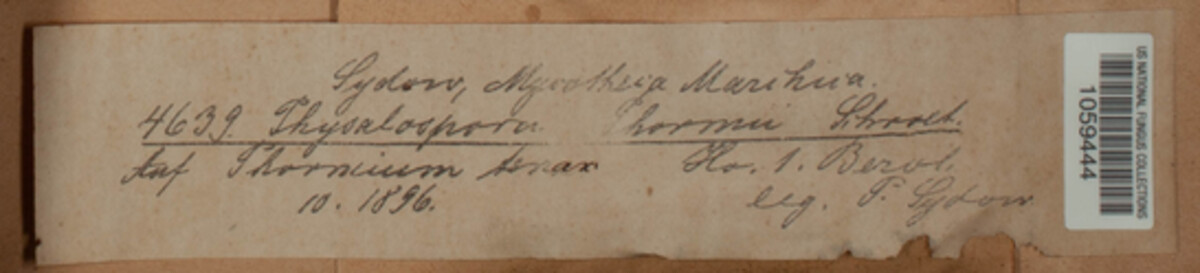 Sydow, Mycotheca Marchica.
4639. Physalospora Phormii Schroet.
Auf Phormium tenax Ho. 1. Berol.
10. 1896. leg. P. Sydow
US NATIONAL FUNGUS COLLECTIONS
1059444